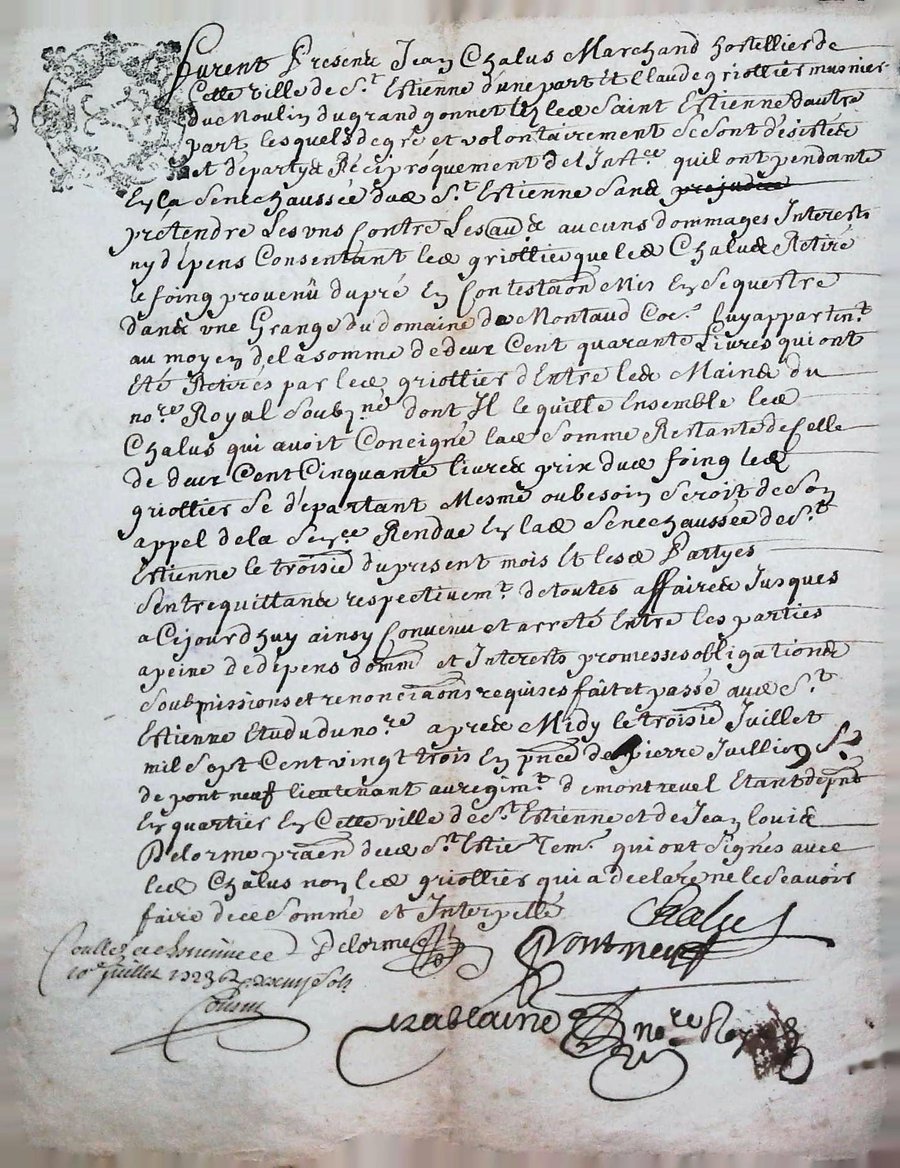 furent Presens Jean Chalus Marchand hostellier de
Cette ville de St. Estienne d'une part et Claude griottier musnier
du Moulin du grand gonnet lez led Saint Estienne d'autre
part, lesquels de gré et volontairement se sont désistés
et départys Réciproquement de l'Instce qu'il ont pendante
En la Senechaussée dud St. Estienne Sans prejudice
prétendre Les uns Contre Les aud aucuns dommages Interests
ny dépens Consentant led griottier que led Chalus Retire
le foing provenû du pré En Contestaon Mis En Sequestre
dans une Grange du domaine de Montaud luy appartent
au moyen de la somme de deux Cent quarante Livres qui ont
Eté Retirés par led griottier d'Entre les Mains du
nore Royal Soubné dont Il le quitte Ensemble led
Chalus qui avoit Concigné lad Somme Restante de Celle
de deux Cent Cinquante livres prix dud foing led
griottier Se départant Mesme ou besoin Seroit de Son
appel de la Sence Rendue En lad Senechaussée de St
Estienne le troisie du present mois Et lesd Partyes
S'entrequittans respectivemt. de toutes affaires Jusques
a Cejourd'huy ainsy Convenu et arreté Entre les parties
a peine de dépens domm et Interests promesses obligations
Soubmissions et renonciaons requises fait et passé aud St
Estienne Etude du nore apres Midy le troisie Juillet
mil Sept Cent vingt trois En pnce de pierre Juillien Sr
de pont neuf lieutenant au regimt de montrevel Etant de pnt
En quartier En Cette ville de St. Estienne et de Jean louis
Delorme praen dud St. Estie Tem. qui ont Signés avec
led Chalus non led griottier qui a declaré ne le Scavoir
faire de ce Sommé et Interpellé
Chalus
Delorme
Pontneuf
10e Juillet 1723
nore Royal